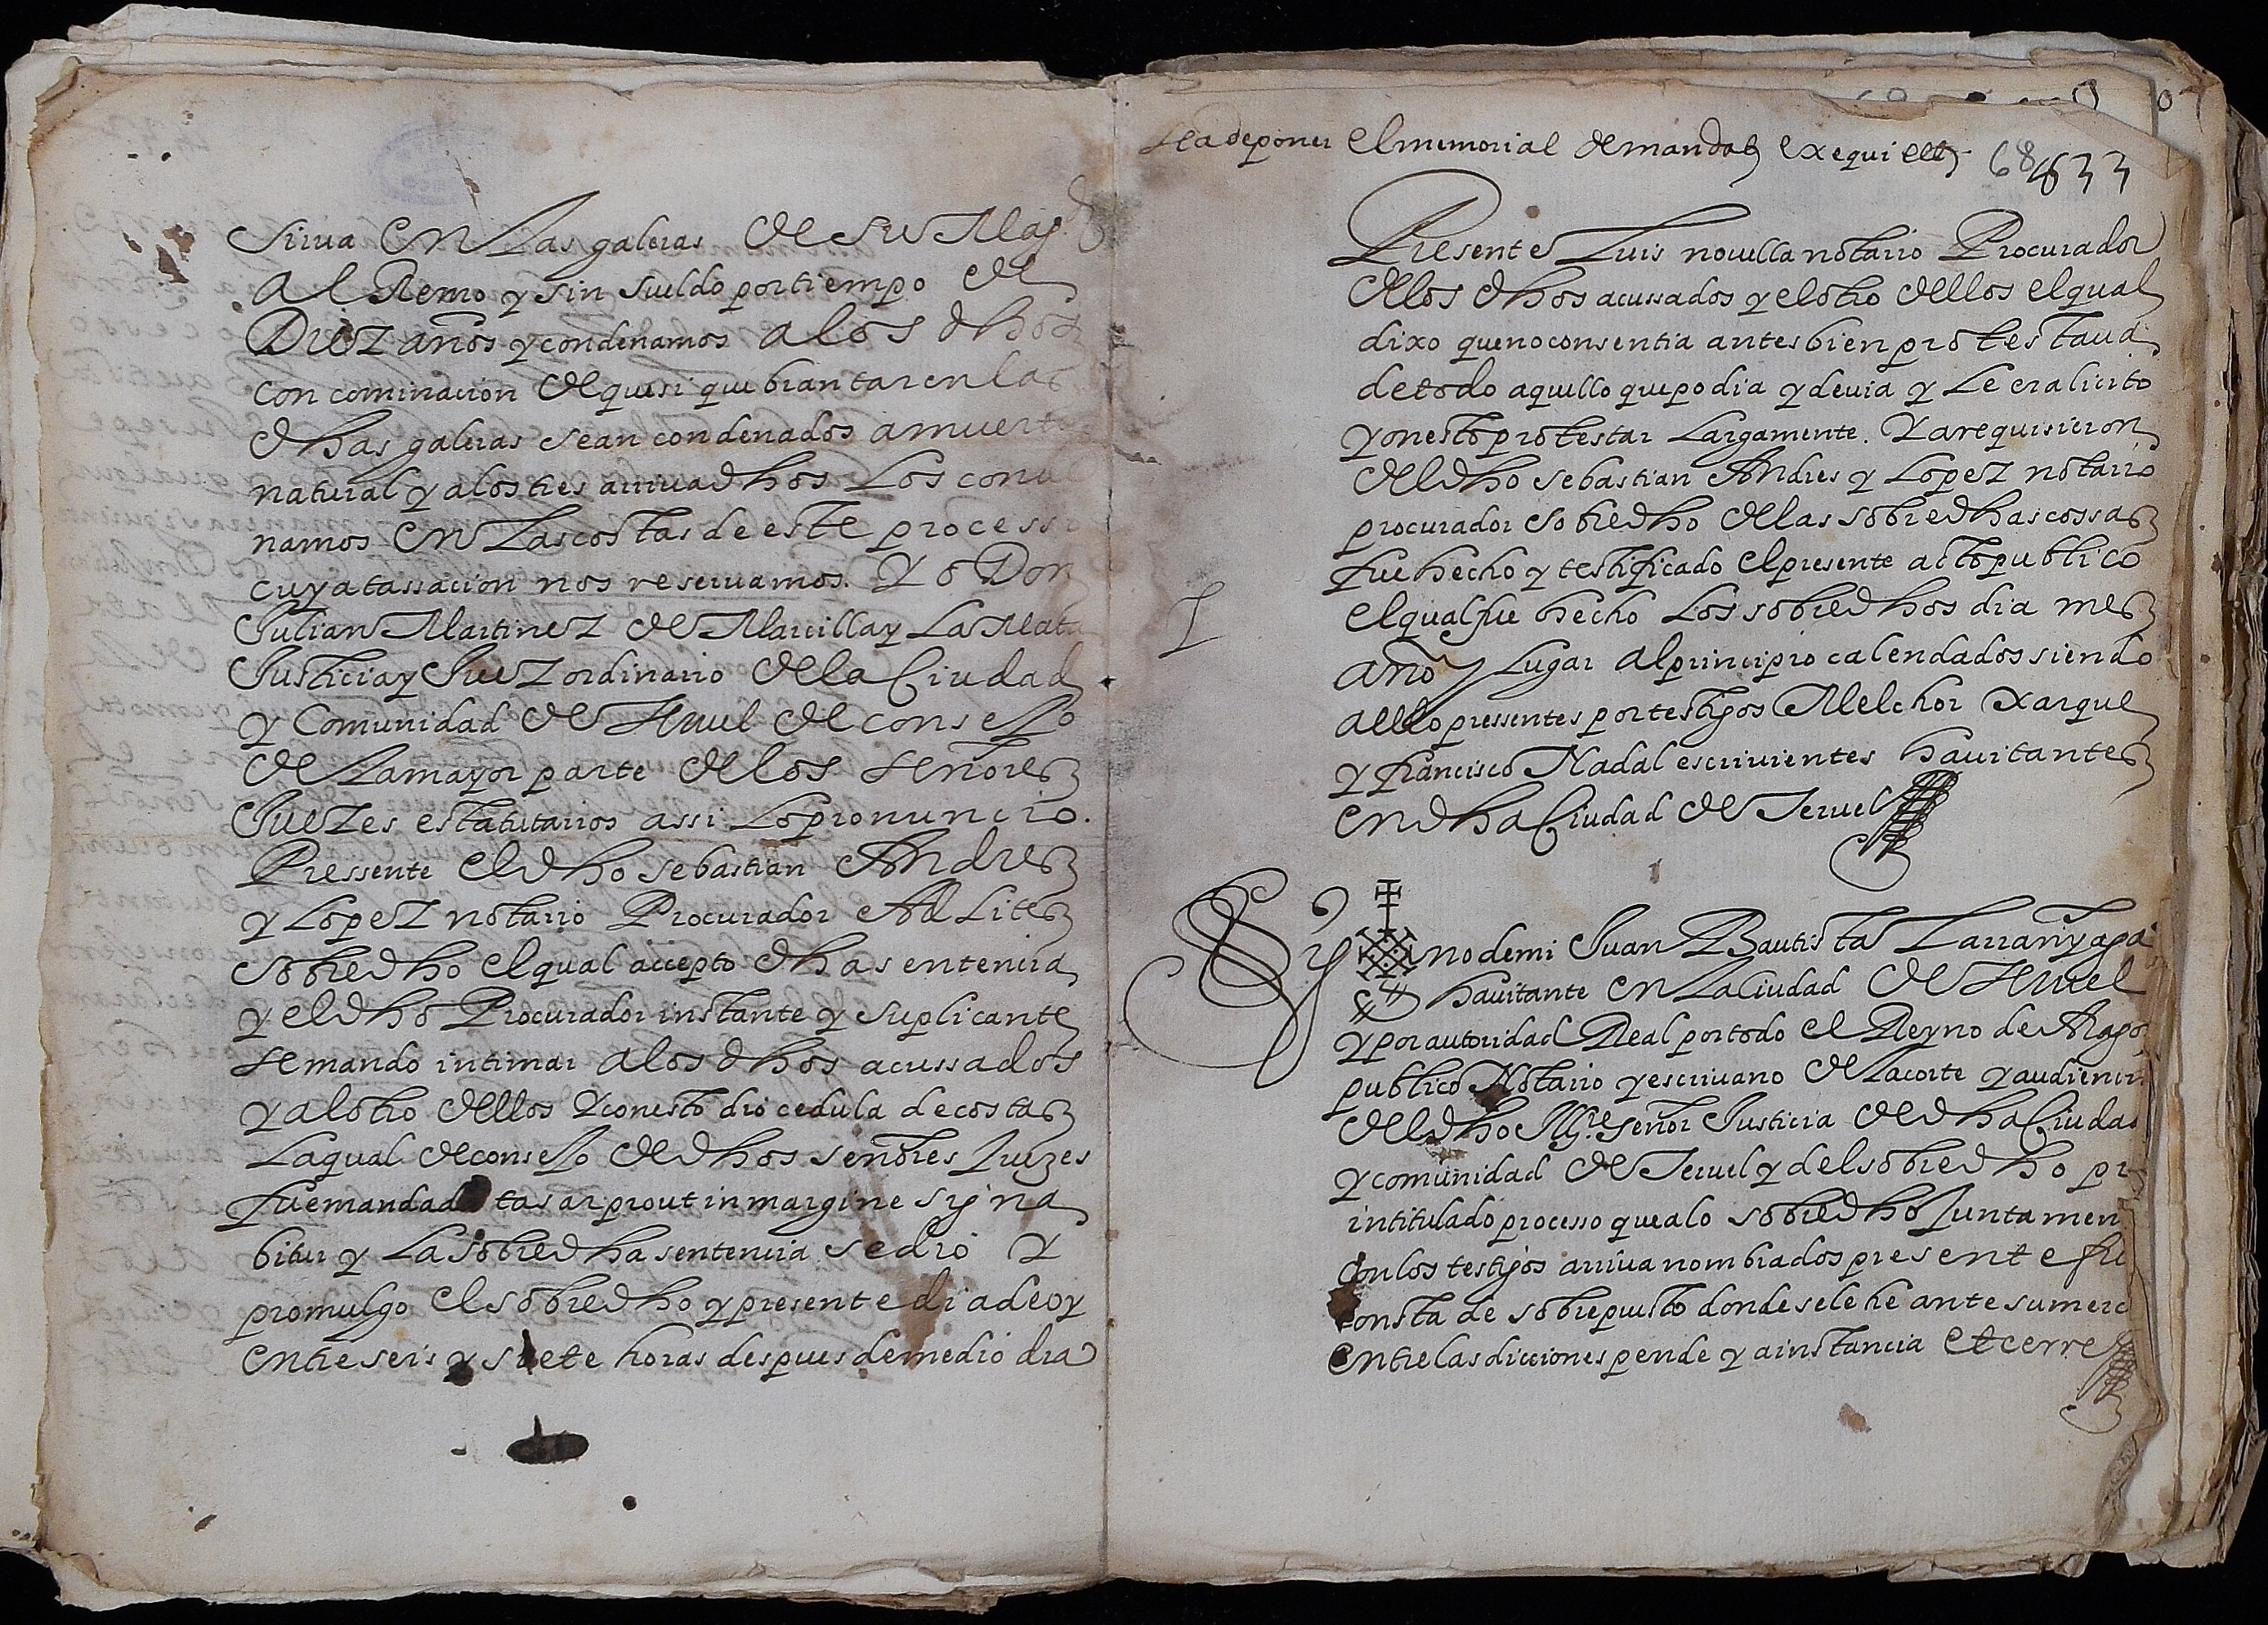 Sirua en las galeras de su Mag.d
al Remo y sin sueldo por tiempo de
Diez años y condenamos a los dhos
con cominacion de que si quebrantaren las
dhas galeras sean condenados a muerte
natural y a los tres arriuadhos los conde
namos en las costas de este processo
cuya tassacion nos reseruamos. Yo Don
Julian Martinez de Marcilla y La Mata
Justicia y Juez ordinario de la Ciudad
y Comunidad de Teruel de consejo
de la mayor parte de los señores
Juezes estatutarios assi lo pronuncio.
Pressente el dho sebastian Andres
y Lopez notario Procurador Ad Lites
sobredho el qual accepto dha sentencia
y el dho Procurador instante y suplicante
se mando intimar a los dhos acussados
y al otro dellos y con esto dio cedula de costas
La qual de consejo de dhos señores Juezes
fue mandada tasar prout in margine signa
bitur y La sobredha sentencia se dio y
promulgo el sobredho y presente dia de oy
entre seis y siete horas despues de medio dia
se a de poner el memorial de mandatis exequi 68 633
Presente Luis nouella notario Procurador
de los dhos acussados y el otro dellos el qual
dixo que no consentia antes bien protestaua
de todo aquello que podia y deuia y le era licito
y onesto protestar largamente. Y a requisicion
del dho sebastian Andres y Lopez notario
procurador sobredho de las sobredhas cossas
fue hecho y testificado el presente acto publico
el qual fue hecho los sobredhos dia mes
año y lugar al principio calendados siendo
a ello pressentes por testigos Melchor Xarque
y francisco Nadal escriuientes hauitantes
en dha Ciudad de Teruel
Sig no de mi Juan Bautista Larrañaga
hauitante en la Ciudad de Teruel
y por autoridad Real por todo el Reyno de Arago
publico Notario y escriuano de la corte y audiencia
del dho Illre. señor Justicia de dha Ciudad
y comunidad de Teruel y del sobredho pr
intitulado processo que a lo sobredho Juntamen
con los testigos arriua nombrados presente fui
consta de sobrepuesto donde se lehe ante su merc
entre las dicciones pende y a instancia Et cerre